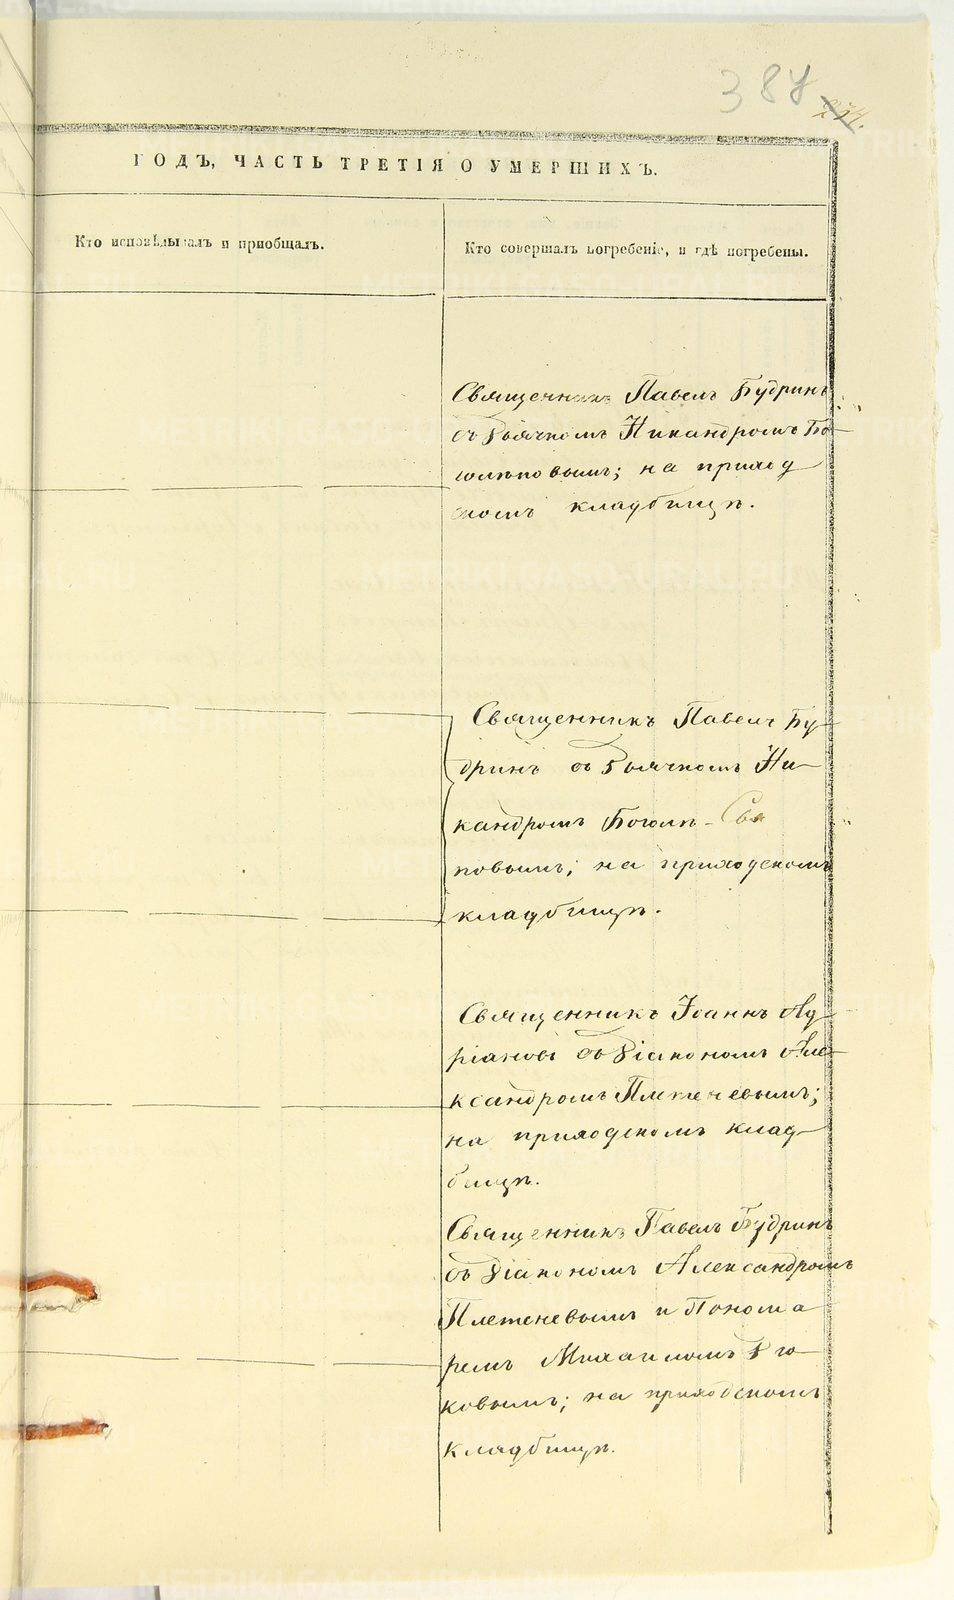 387
254.
ГОДЪ, ЧАСТЬ ТРЕТІЯ О УМЕРШИХЪ.
Кто исповѣдывалъ и пріобщалъ.
Кто совершалъ погребеніе, и гдѣ погребены.
Священникъ Павелъ Будринъ
съ дьячкомъ Никандромъ Бо-
голѣповымъ; на приход
скомъ кладбищѣ.
Священникъ Павелъ Бу-
дринъ съ дьячкомъ Ни-
кандромъ Боголѣ- Свя
повымъ; на приходскомъ
кладбищѣ.
Священникъ Іоаннъ Ад-
ріановъ съ діакономъ Але-
ксандромъ Плетеневымъ;
на приходскомъ клад-
бищѣ.
Священникъ Павелъ Будринъ
съ діакономъ Александромъ
Плетеневымъ и Понома
ремъ Михаиломъ
ковымъ; на приходскомъ
кладбищѣ.
METRIKI.GASO-URAL.RU